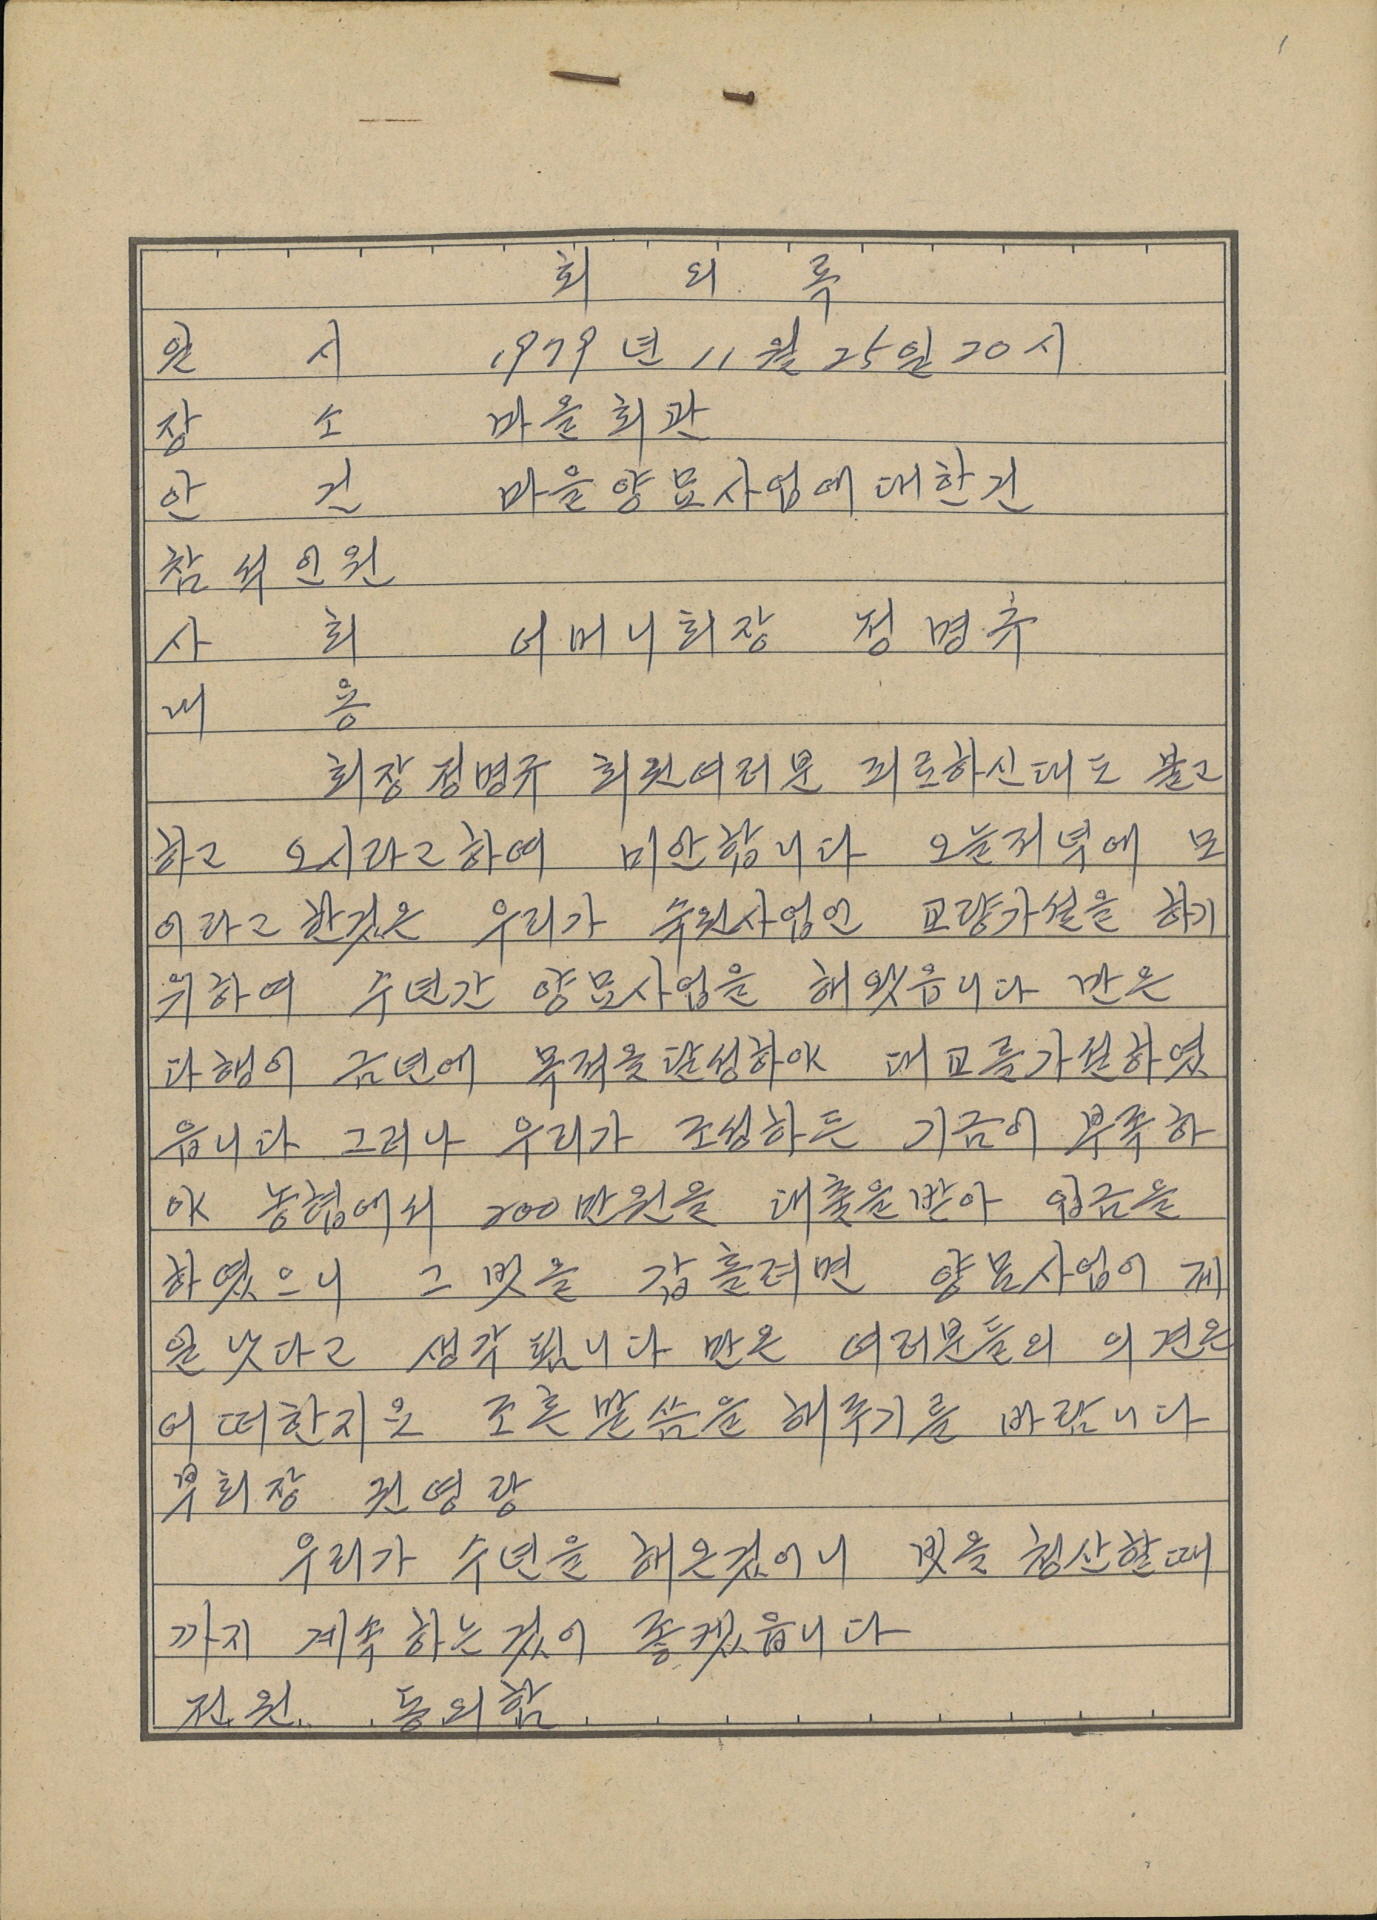 회 의 록
일 시 1979년 11월 25일 20시
장 소 마을회관
안 건 마을양묘사업에대한건
참석인원
사 회 어머니회장 정명규
내 용
회장정명규 회원여러분 피로하신대도 불고
하고 오시라고하여 미안합니다 오늘저녁에 모
이라고한것은 우리가 숙원사업인 교량가설을 하기
위하여 수년간 양묘사업을 해왔읍니다 만은
다행이 금년에 목적을달성하야 대교를가설하였
읍니다 그러나 우리가 조성하든 기금이 부족하
야 농협에서 200만원을 대출을받아 입금을
하였으니 그 빗을 갑흘려면 양묘사업이 제
일낫다고 생각됩니다 만은 여러분들의 의견은
어떠한지요 조흔말씀을해주기를 바람니다
부회장 권영랑
우리가 수년을 해온것이니 빗을 청산할때
까지 계속하는것이 좋겠읍니다
전원 동의함